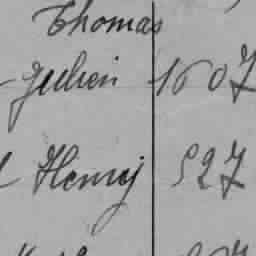 Thomas
Julien 1607
Henry 527